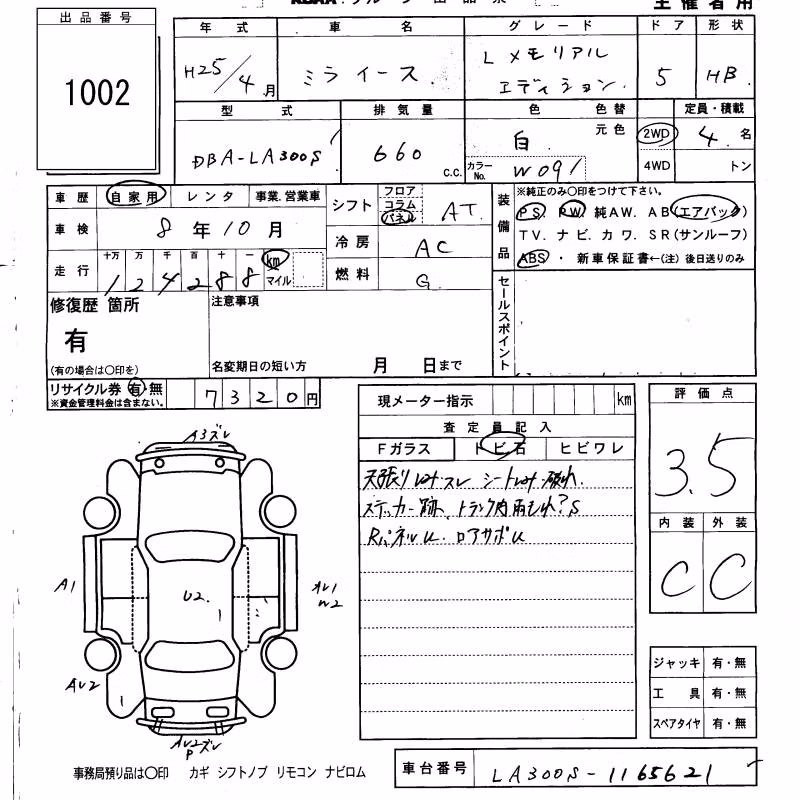 主催者用
出品番号
1002
年式 車名 グレード ドア 形状
H25/4月 ミライース Lメモリアル エディション 5 HB
型式 排気量 色 色替 定員・積載
DBA-LA300S 660 C.C. 白 元色 2WD 4名
カラーNo. W091 4WD トン
車歴 自家用 レンタ 事業.営業車
車検 8年10月
走行 十万 万 千 百 十 一
124288 km マイル
シフト フロア コラム パネル AT
冷房 AC
燃料 G
装備品
※純正のみ○印をつけて下さい。
PS. PW. 純AW. AB(エアバック)
TV. ナビ. カワ. SR(サンルーフ)
ABS ・ 新車保証書←(注) 後日送りのみ
修復歴 箇所
有
(有の場合は○印を)
注意事項
名変期日の短い方 月 日まで
セールスポイント
リサイクル券 有・無 7320円
※資金管理料金は含まない。
現メーター指示 km
査定員記入
Fガラス トビ石 ヒビワレ
天張りUキスレ シートUキ 破れ
ステッカー跡、トランク内雨もれ?S
RパネルU ロアサポU
評価点
3.5
内装 外装
C C
A3ズレ
A1
U2.
W2
AU2
AU2
Pズレ
ジャッキ 有・無
工具 有・無
スペアタイヤ 有・無
事務局預り品は○印 カギ シフトノブ リモコン ナビロム
車台番号 LA300S-1165621